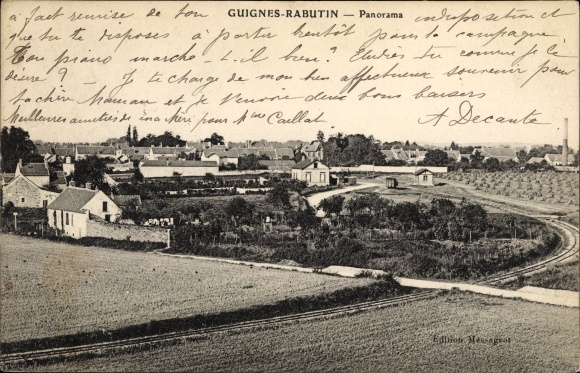 GUIGNES-RABUTIN — Panorama
a fait remise de ton indisposition et
que tu te disposes à partir bientôt pour la campagne
Ton piano marche-t-il bien? Etudies tu comme je le
désire? Je te charge de mon bien affectueux souvenir pour
ta chère Maman et je t'envoie deux bons baisers
Meilleures amitiés de ta mère pour Mme Caillat
A Decante
Edition Messageot